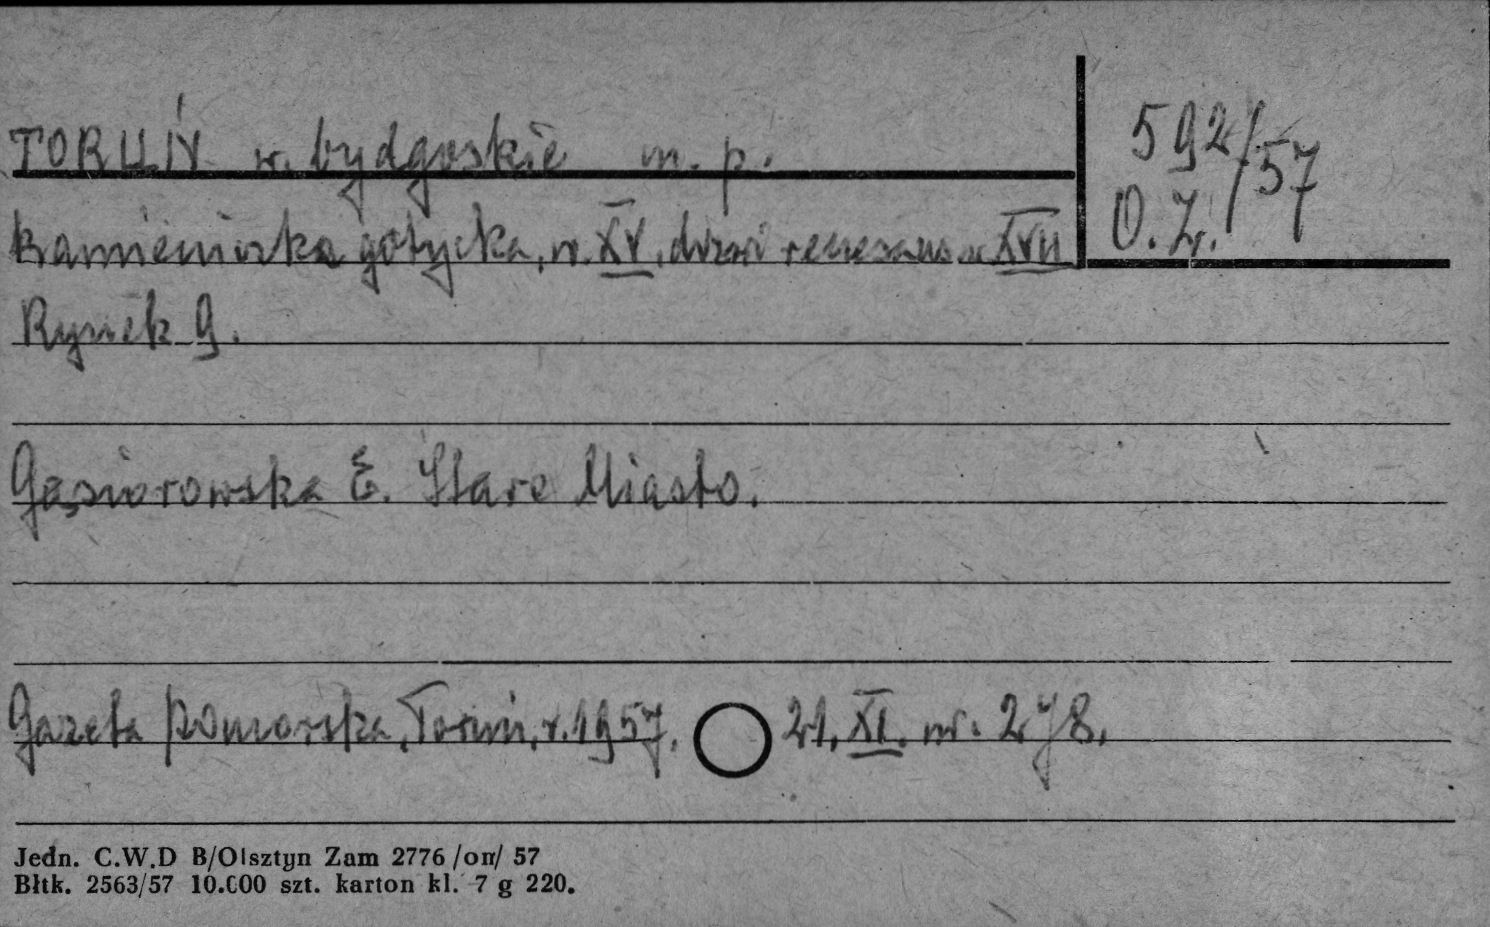 TORUŃ w. bydgoskie m. p.
592/57
O. Z.
Kamieniczka gotycka, w. XV, drzwi renesans. w. XVII
Rynek 9.
Gąsiorowska E. Stare Miasto.
Gazeta Pomorska, Toruń, r. 1957. 21. XI. nr. 278.
Jedn. C.W.D B/Olsztyn Zam 2776 /on/ 57
Błtk. 2563/57 10.000 szt. karton kl. 7 g 220.